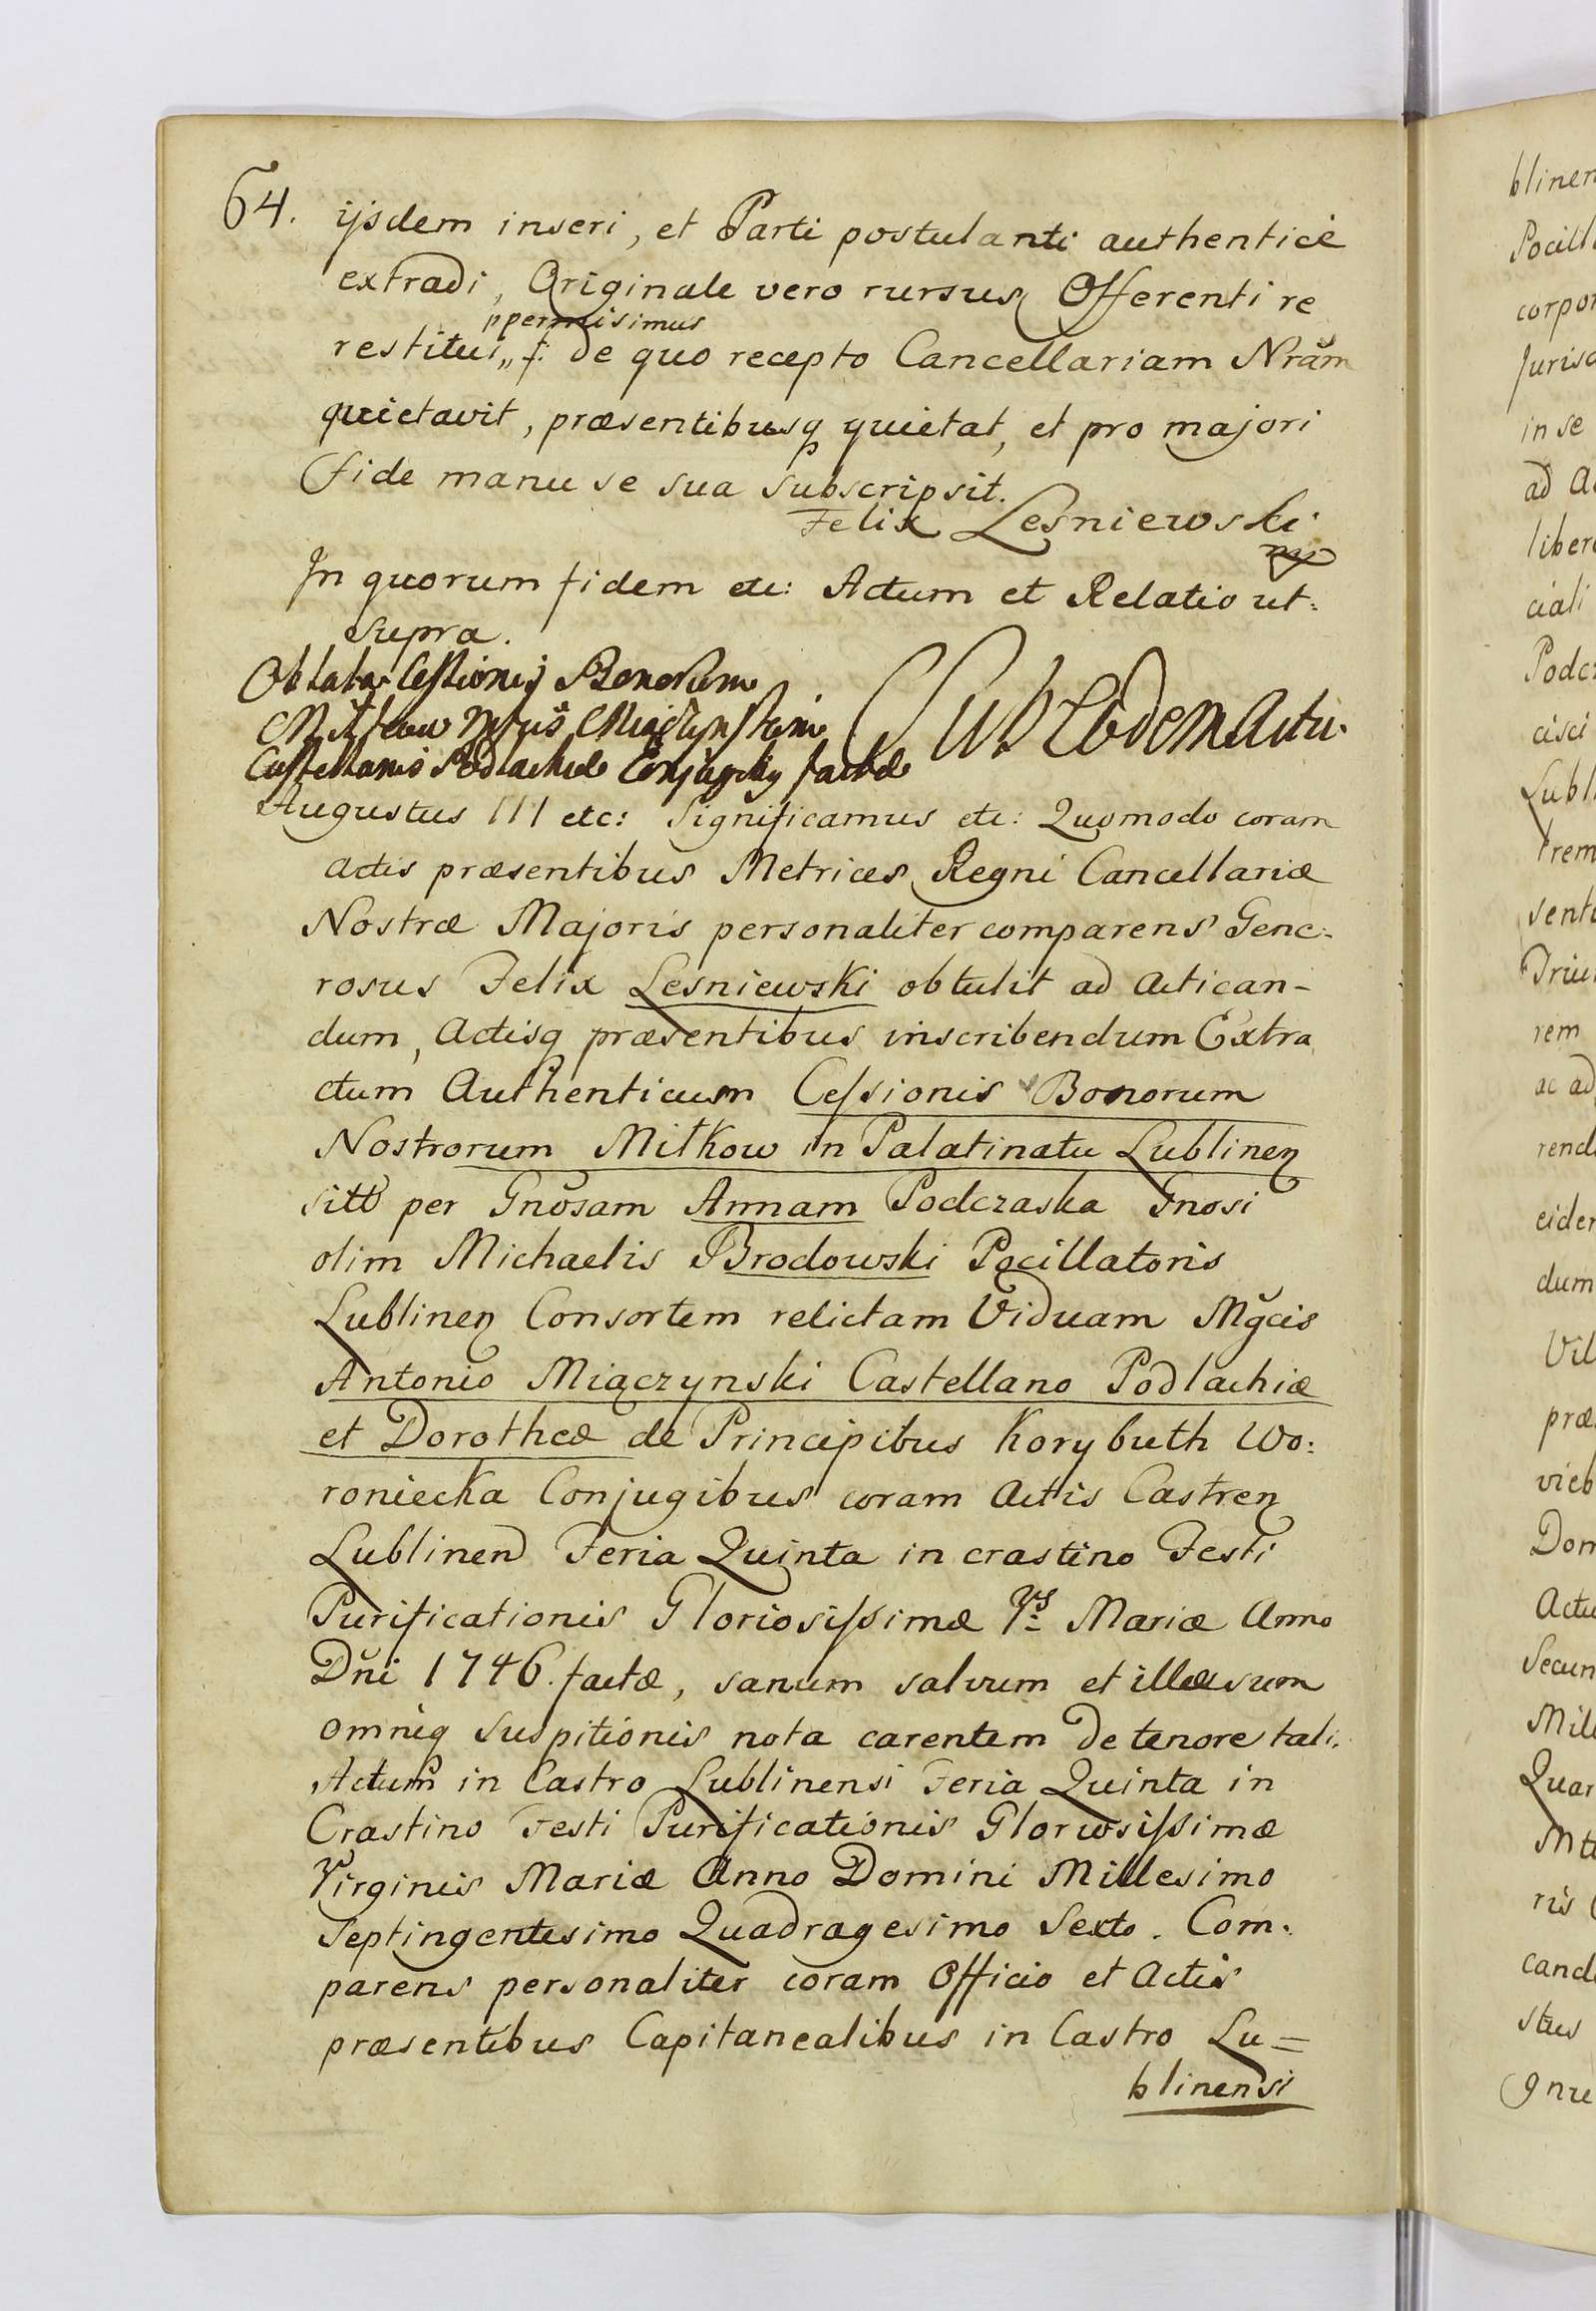 64.
ijsdem inseri, et Parti postulanti authenticè
extradi, Originale vero rursus Offerenti re
ppermisimus
restitui,, de quo recepto Cancellariam Nrãm
quietavit, præsentibusq quietat, et pro majori
fide manu se sua subscripsit.
Felix Lesniewski
mp
In quorum fidem etc: Actum et Relatio ut:
supra.
Oblata Cessionis Bonorum
Miłkow Miączynskim
Castellanis Podlachiæ Conjugibq factæ
Sub Eodem Actu.
Augustus III etc: Significamus etc: Quomodo coram
actis præsentibus Metrices Regni Cancellariæ
Nostræ Majoris personaliter comparens Gene-
rosus Felix Lesniewski obtulit ad actican-
dum, Actisq præsentibus inscribendum Extra
ctum Authenticum Cessionis Bonorum
Nostrorum Miłkow in Palatinatu Lublinen
sitt per Gnõsam Annam Podczaska Gnosi
olim Michaelis Brodowski Pocillatoris
Lublinen Consortem relictam Viduam Mg̃cis
Antonio Miączynski Castellano Podlachiæ
et Dorotheæ de Principibus Korybuth Wo:
roniecka Conjugibus coram Actis Castren
Lublinen Feria Quinta in crastino Festi
Purificationis Gloriosissimæ Vs Mariæ Anno
Dñi 1746. factæ, sanum salvum et illæsum
omniq suspitionis nota carentem de tenore tali.
Actum in Castro Lublinensi Feria Quinta in
Crastino Festi Purificationis Gloriosissimæ
Virginis Mariæ Anno Domini Millesimo
Septingentesimo Quadragesimo Sexto. Com:
parens personaliter coram Officio et Actis
præsentibus Capitanealibus in Castro Lu=
blinensi
blinen
Pocill
corpor
Juris
in se
ad A
liber
ciali
Podc
cisci
Lubl
trem
sent
Triu
rem
ac ad
rend
eider
dum
Vil
præ
vieb
Dom
Actu
Secun
Mill
Quar
ris
cand
stus